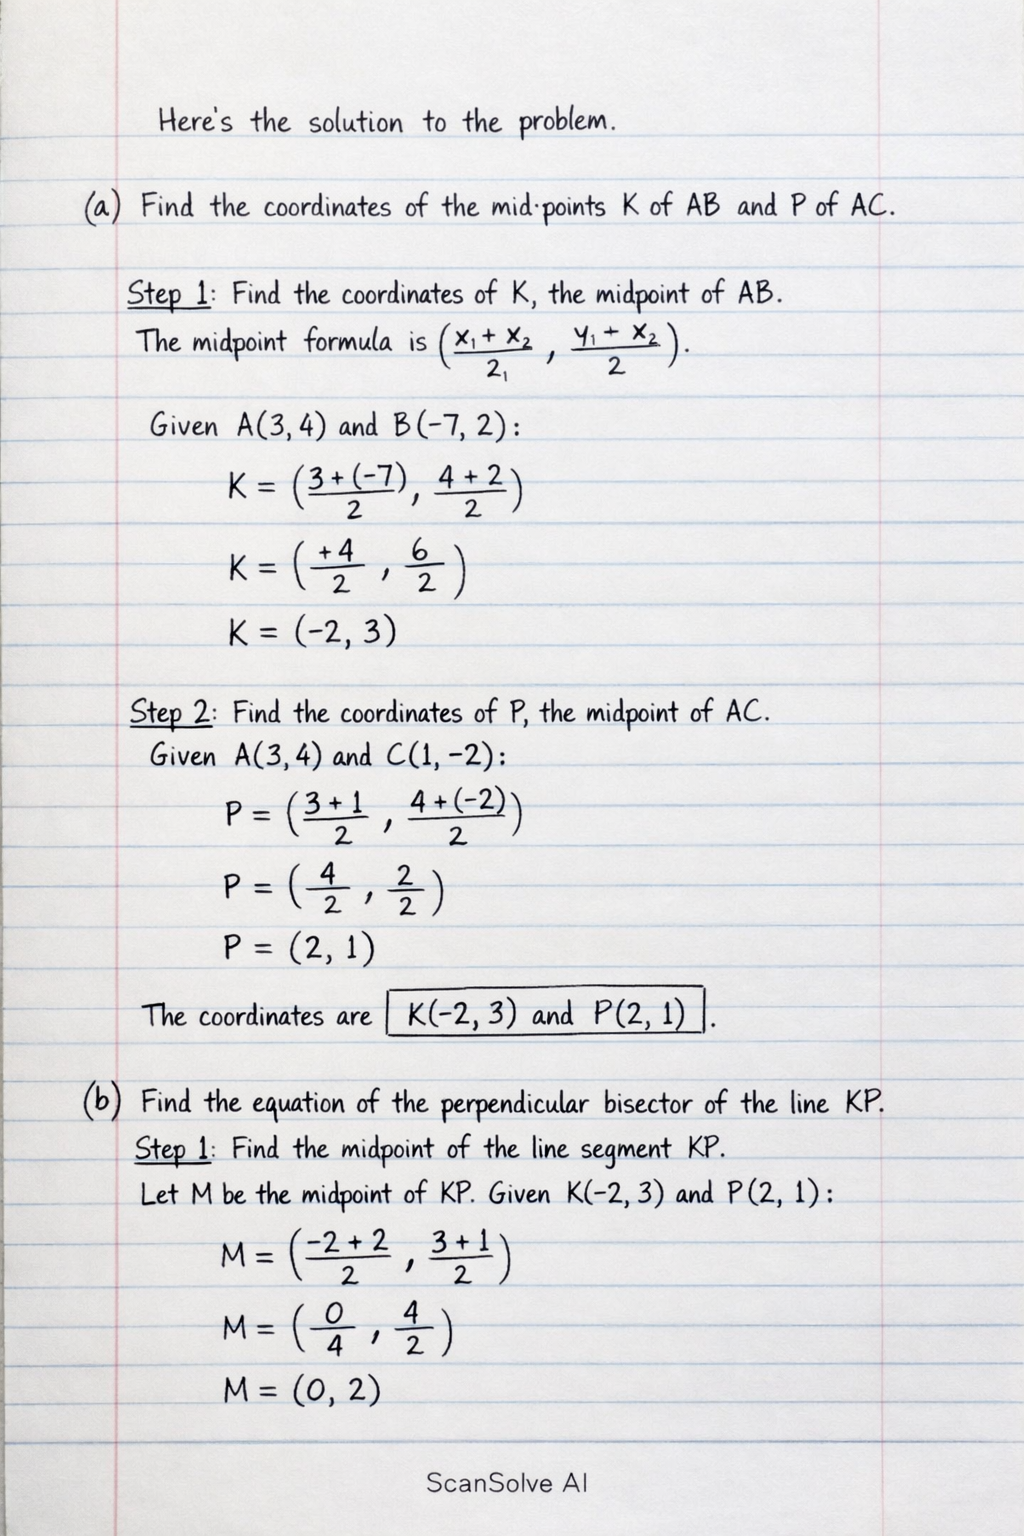 Here's the solution to the problem.
(a) Find the coordinates of the mid·points K of AB and P of AC.
Step 1: Find the coordinates of K, the midpoint of AB.
The midpoint formula is ( (x₁ + x₂)/2₁ , (y₁ + x₂)/2 ).
Given A(3, 4) and B(-7, 2):
K = ( (3 + (-7))/2 , (4 + 2)/2 )
K = ( +4/2 , 6/2 )
K = (-2, 3)
Step 2: Find the coordinates of P, the midpoint of AC.
Given A(3, 4) and C(1, -2):
P = ( (3 + 1)/2 , (4 + (-2))/2 )
P = ( 4/2 , 2/2 )
P = (2, 1)
The coordinates are K(-2, 3) and P(2, 1).
(b) Find the equation of the perpendicular bisector of the line KP.
Step 1: Find the midpoint of the line segment KP.
Let M be the midpoint of KP. Given K(-2, 3) and P(2, 1):
M = ( (-2 + 2)/2 , (3 + 1)/2 )
M = ( 0/4 , 4/2 )
M = (0, 2)
ScanSolve AI